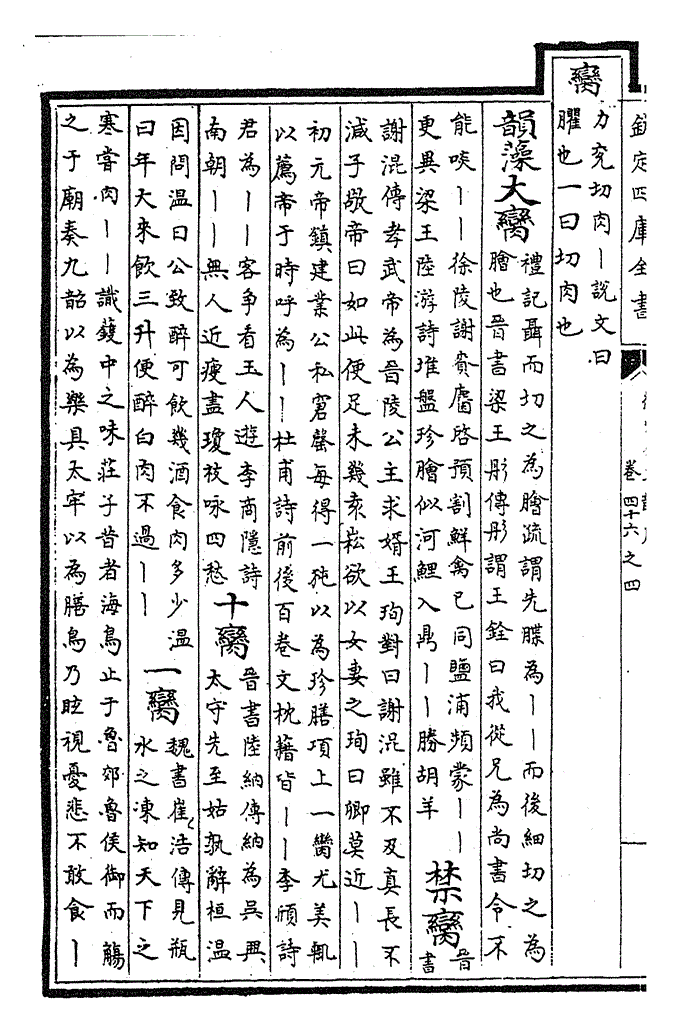 欽定四庫全書
卷四十六之四
臠
力兗切肉丨說文曰
臞也一曰切肉也
韻藻大臠
禮記聶而切之為膾疏謂先牒為丨丨而後細切之為
膾也晉書梁王肜傳肜謂王銓曰我從兄為尚書令不
能啖丨丨徐陵謝賚麞啓預割鮮禽已同鹽浦頻蒙丨丨
更異梁王陸游詩堆盤珍膾似河鯉入鼎丨丨勝胡羊
禁臠
晉
書
謝混傳孝武帝為晉陵公主求婿王珣對曰謝混雖不及真長不
減子敬帝曰如此便足未幾袁崧欲以女妻之珣曰卿莫近丨丨
初元帝鎮建業公私窘罄每得一㹠以為珍膳項上一臠尤美輒
以薦帝于時呼為丨丨杜甫詩前後百卷文枕藉皆丨丨李頎詩
君為丨丨客爭看玉人遊李商隱詩
南朝丨丨無人近瘦盡瓊枝咏四愁
十臠
晉書陸納傳納為吳興
太守先至姑孰辭桓温
因問温曰公致醉可飲幾酒食肉多少温
曰年大來飲三升便醉白肉不過丨丨
一臠
魏書崔浩傳見瓶
水之凍知天下之
寒嘗肉丨丨識鑊中之味莊子昔者海鳥止于魯郊魯侯御而觴
之于廟奏九韶以為樂具太牢以為膳鳥乃眩視憂悲不敢食丨